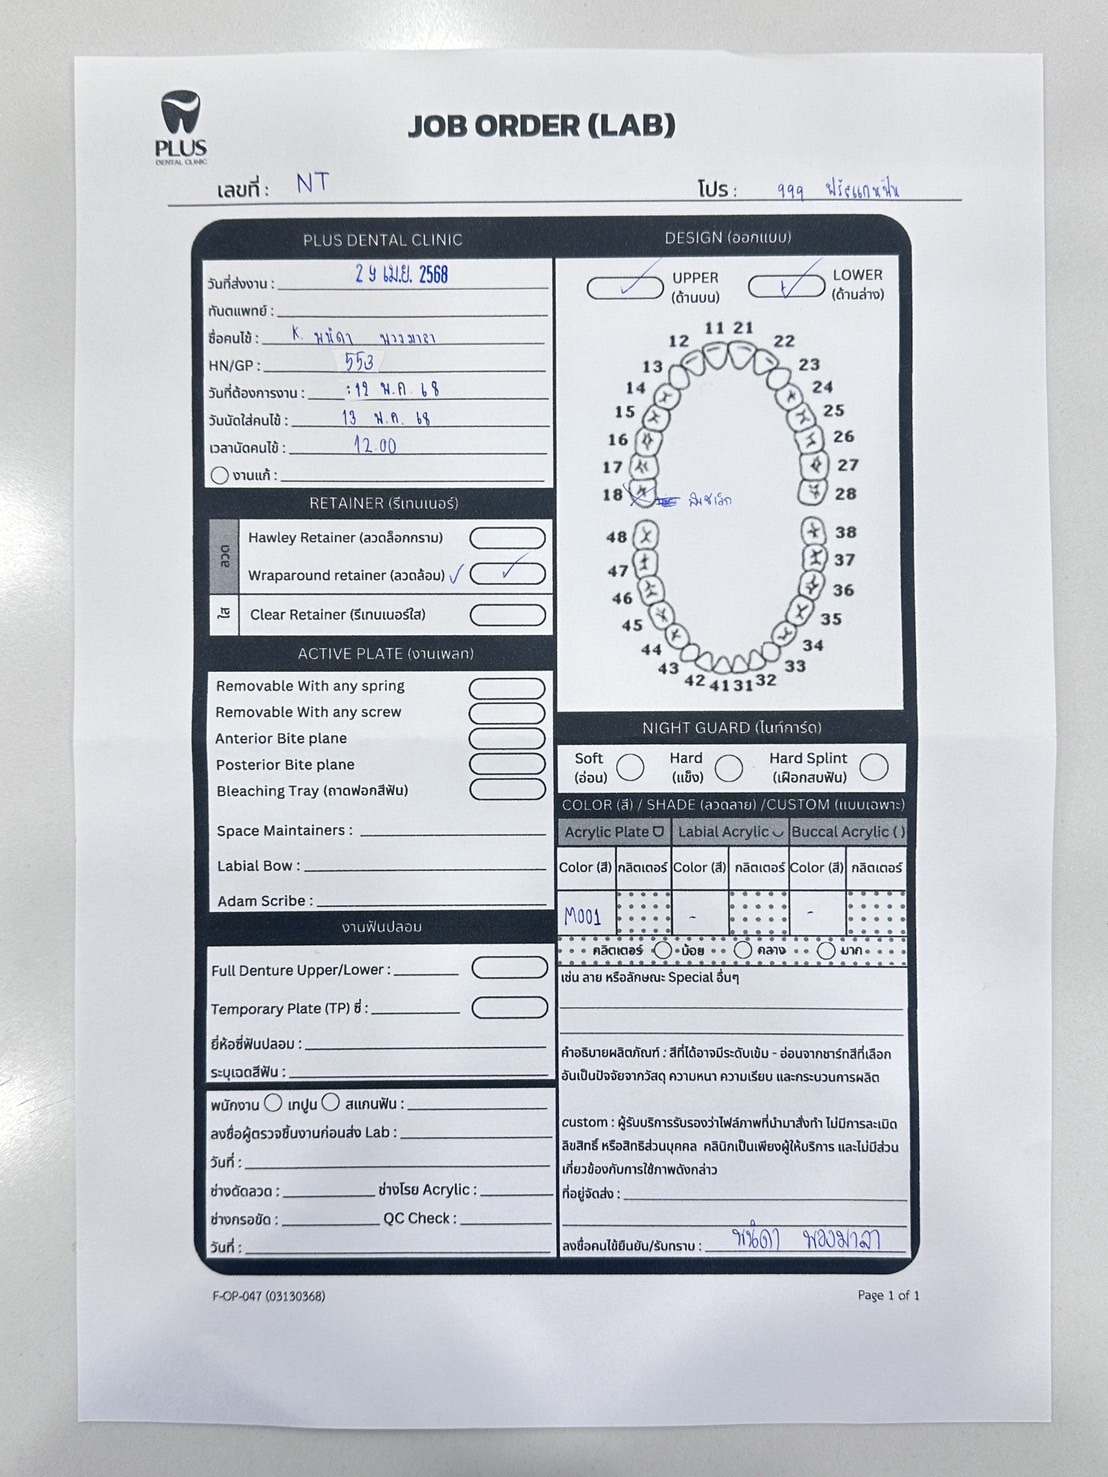 PLUS
DENTAL CLINIC
JOB ORDER (LAB)
เลขที่ : NT
โปร : 999 ฟรีสแกนฟัน
PLUS DENTAL CLINIC
วันที่ส่งงาน : 29 เม.ย. 2568
ทันตแพทย์ :
ชื่อคนไข้ : K. พนิดา พวงมาลา
HN/GP : 553
วันที่ต้องการงาน : 12 พ.ค. 68
วันนัดใส่คนไข้ : 13 พ.ค. 68
เวลานัดคนไข้ : 12.00
งานแก้ :
RETAINER (รีเทนเนอร์)
ลวด
Hawley Retainer (ลวดล็อกกราม)
Wraparound retainer (ลวดล้อม) ✓ ✓
ใส
Clear Retainer (รีเทนเนอร์ใส)
ACTIVE PLATE (งานเพลท)
Removable With any spring
Removable With any screw
Anterior Bite plane
Posterior Bite plane
Bleaching Tray (ถาดฟอกสีฟัน)
Space Maintainers :
Labial Bow :
Adam Scribe :
งานฟันปลอม
Full Denture Upper/Lower :
Temporary Plate (TP) ซี่ :
ยี่ห้อซี่ฟันปลอม :
ระบุเฉดสีฟัน :
พนักงาน เทปูน สแกนฟัน :
ลงชื่อผู้ตรวจชิ้นงานก่อนส่ง Lab :
วันที่ :
ช่างดัดลวด : ช่างโรย Acrylic :
ช่างกรอขัด : QC Check :
วันที่ :
DESIGN (ออกแบบ)
✓ UPPER
(ด้านบน)
✓ LOWER
(ด้านล่าง)
11 21
12 22
13 23
14 24
15 25
16 26
17 27
18 28
48 38
47 37
46 36
45 35
44 34
43 33
42 41 31 32
NIGHT GUARD (ไนท์การ์ด)
Soft
(อ่อน)
Hard
(แข็ง)
Hard Splint
(เฝือกสบฟัน)
COLOR (สี) / SHADE (ลวดลาย) /CUSTOM (แบบเฉพาะ)
Acrylic Plate Labial Acrylic Buccal Acrylic ( )
Color (สี) กลิตเตอร์ Color (สี) กลิตเตอร์ Color (สี) กลิตเตอร์
M001 - -
กลิตเตอร์ น้อย กลาง มาก
เช่น ลาย หรือลักษณะ Special อื่นๆ
คำอธิบายผลิตภัณฑ์ : สีที่ได้อาจมีระดับเข้ม - อ่อนจากชาร์ทสีที่เลือก
อันเป็นปัจจัยจากวัสดุ ความหนา ความเรียบ และกระบวนการผลิต
custom : ผู้รับบริการรับรองว่าไฟล์ภาพที่นำมาสั่งทำ ไม่มีการละเมิด
ลิขสิทธิ์ หรือสิทธิส่วนบุคคล คลินิกเป็นเพียงผู้ให้บริการ และไม่มีส่วน
เกี่ยวข้องกับการใช้ภาพดังกล่าว
ที่อยู่จัดส่ง :
ลงชื่อคนไข้ยืนยัน/รับทราบ : พนิดา พวงมาลา
F-OP-047 (03130368)
Page 1 of 1